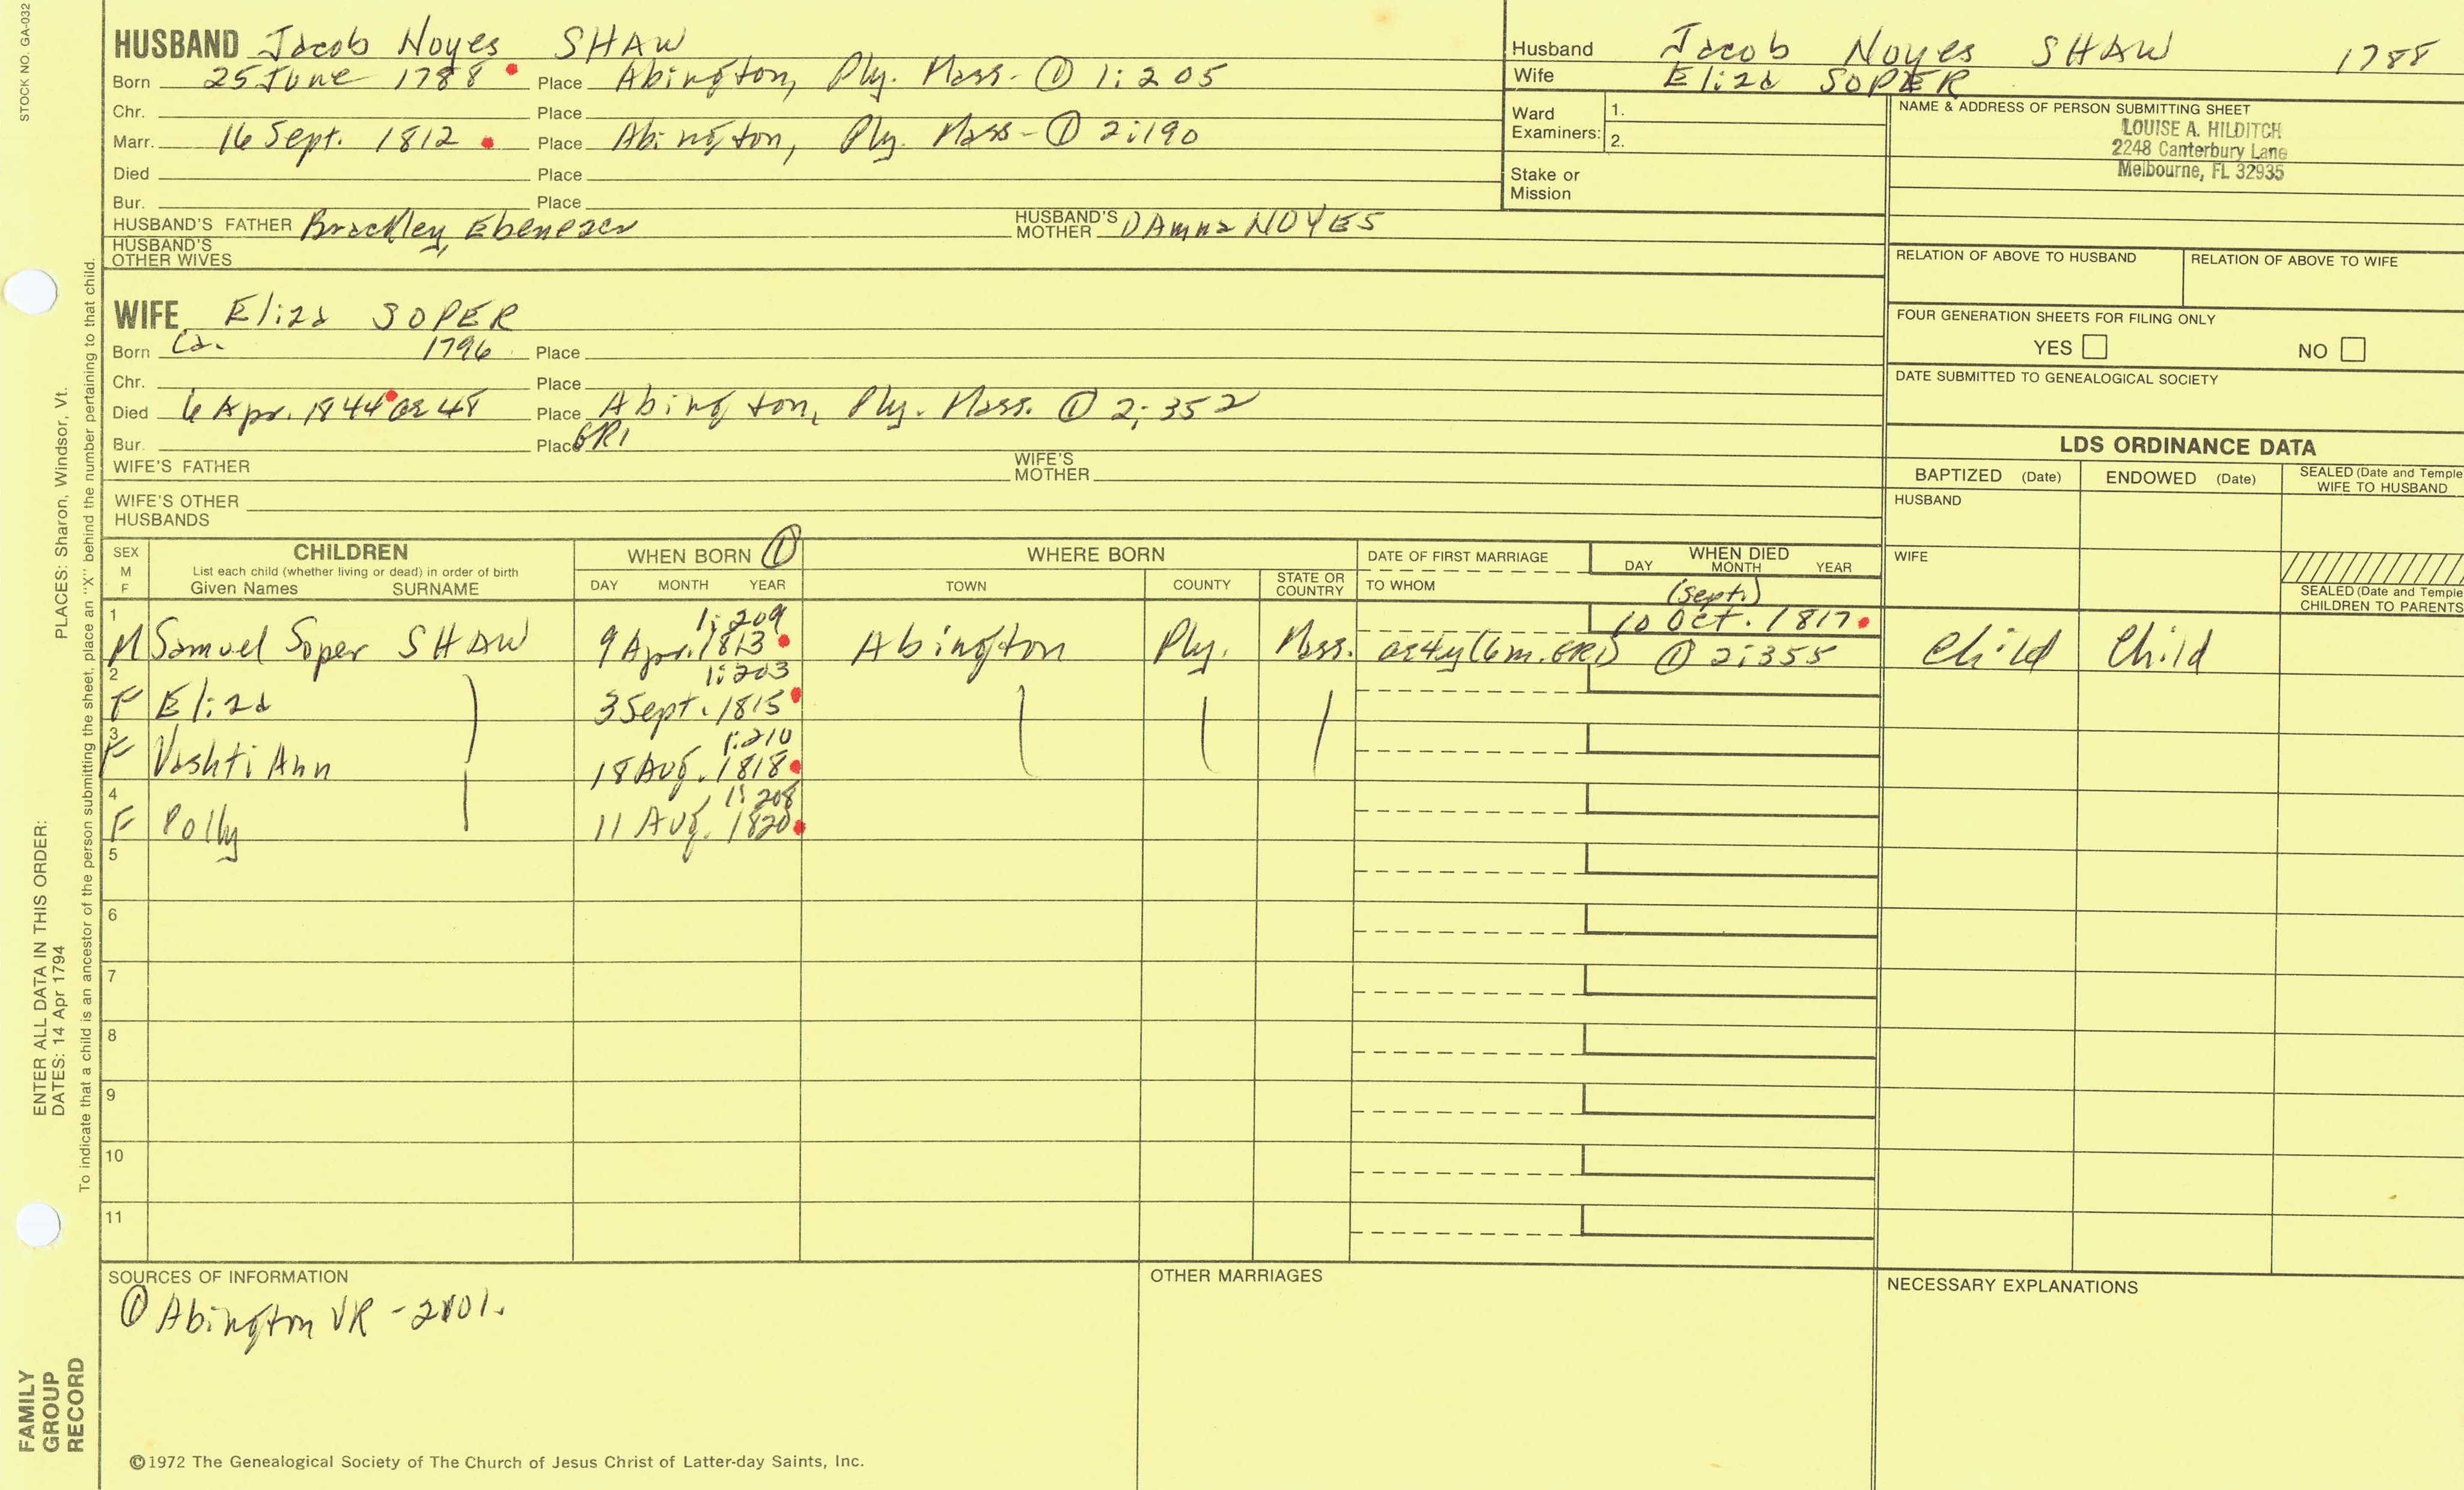 STOCK NO. GA-032
PLACES: Sharon, Windsor, Vt.
ENTER ALL DATA IN THIS ORDER:
DATES: 14 Apr 1794
To indicate that a child is an ancestor of the person submitting the sheet, place an "X" behind the number pertaining to that child.
FAMILY
GROUP
RECORD
HUSBAND Jacob Noyes SHAW
Born 25 June 1788 Place Abington, Ply. Mass- ① 1:205
Chr. Place
Marr. 16 Sept. 1812 Place Abington, Ply Mass- ① 2:190
Died Place
Bur. Place
HUSBAND'S FATHER Brackley, Ebenezer HUSBAND'S MOTHER NOYES
HUSBAND'S
OTHER WIVES
WIFE Eliza SOPER
Born Ca. 1796 Place
Chr. Place
Died 6 Apr. 1844 or 48 Place Abington, Ply. Mass. ① 2:352
Bur. Place GR1
WIFE'S FATHER WIFE'S MOTHER
WIFE'S OTHER
HUSBANDS
Husband Jacob Noyes SHAW 1788
Wife Eliza SOPER
Ward
Examiners: 1.
2.
Stake or
Mission
NAME & ADDRESS OF PERSON SUBMITTING SHEET
LOUISE A. HILDITCH
2248 Canterbury Lane
Melbourne, FL 32935
RELATION OF ABOVE TO HUSBAND RELATION OF ABOVE TO WIFE
FOUR GENERATION SHEETS FOR FILING ONLY
YES NO
DATE SUBMITTED TO GENEALOGICAL SOCIETY
LDS ORDINANCE DATA
BAPTIZED (Date) ENDOWED (Date) SEALED (Date and Temple
WIFE TO HUSBAND
HUSBAND
WIFE
SEALED (Date and Temple
CHILDREN TO PARENTS
SEX
M
F
CHILDREN
List each child (whether living or dead) in order of birth
Given Names SURNAME
WHEN BORN ①
DAY MONTH YEAR
WHERE BORN
TOWN COUNTY STATE OR
COUNTRY
DATE OF FIRST MARRIAGE
TO WHOM
WHEN DIED
DAY MONTH YEAR
(Sept.)
1 1:209 10 Oct. 1817
M Samuel Soper SHAW 9 Apr. 1813 Abington Ply. Mass. ae 4y (6m. GR1) ① 2:355 Child Child
2 1:203
F Eliza 3 Sept. 1815
3 1:210
F Vashti Ann 18 Aug. 1818
4 1:208
F Polly 11 Aug. 1820
5
6
7
8
9
10
11
SOURCES OF INFORMATION
① Abington VR -
OTHER MARRIAGES
NECESSARY EXPLANATIONS
©1972 The Genealogical Society of The Church of Jesus Christ of Latter-day Saints, Inc.